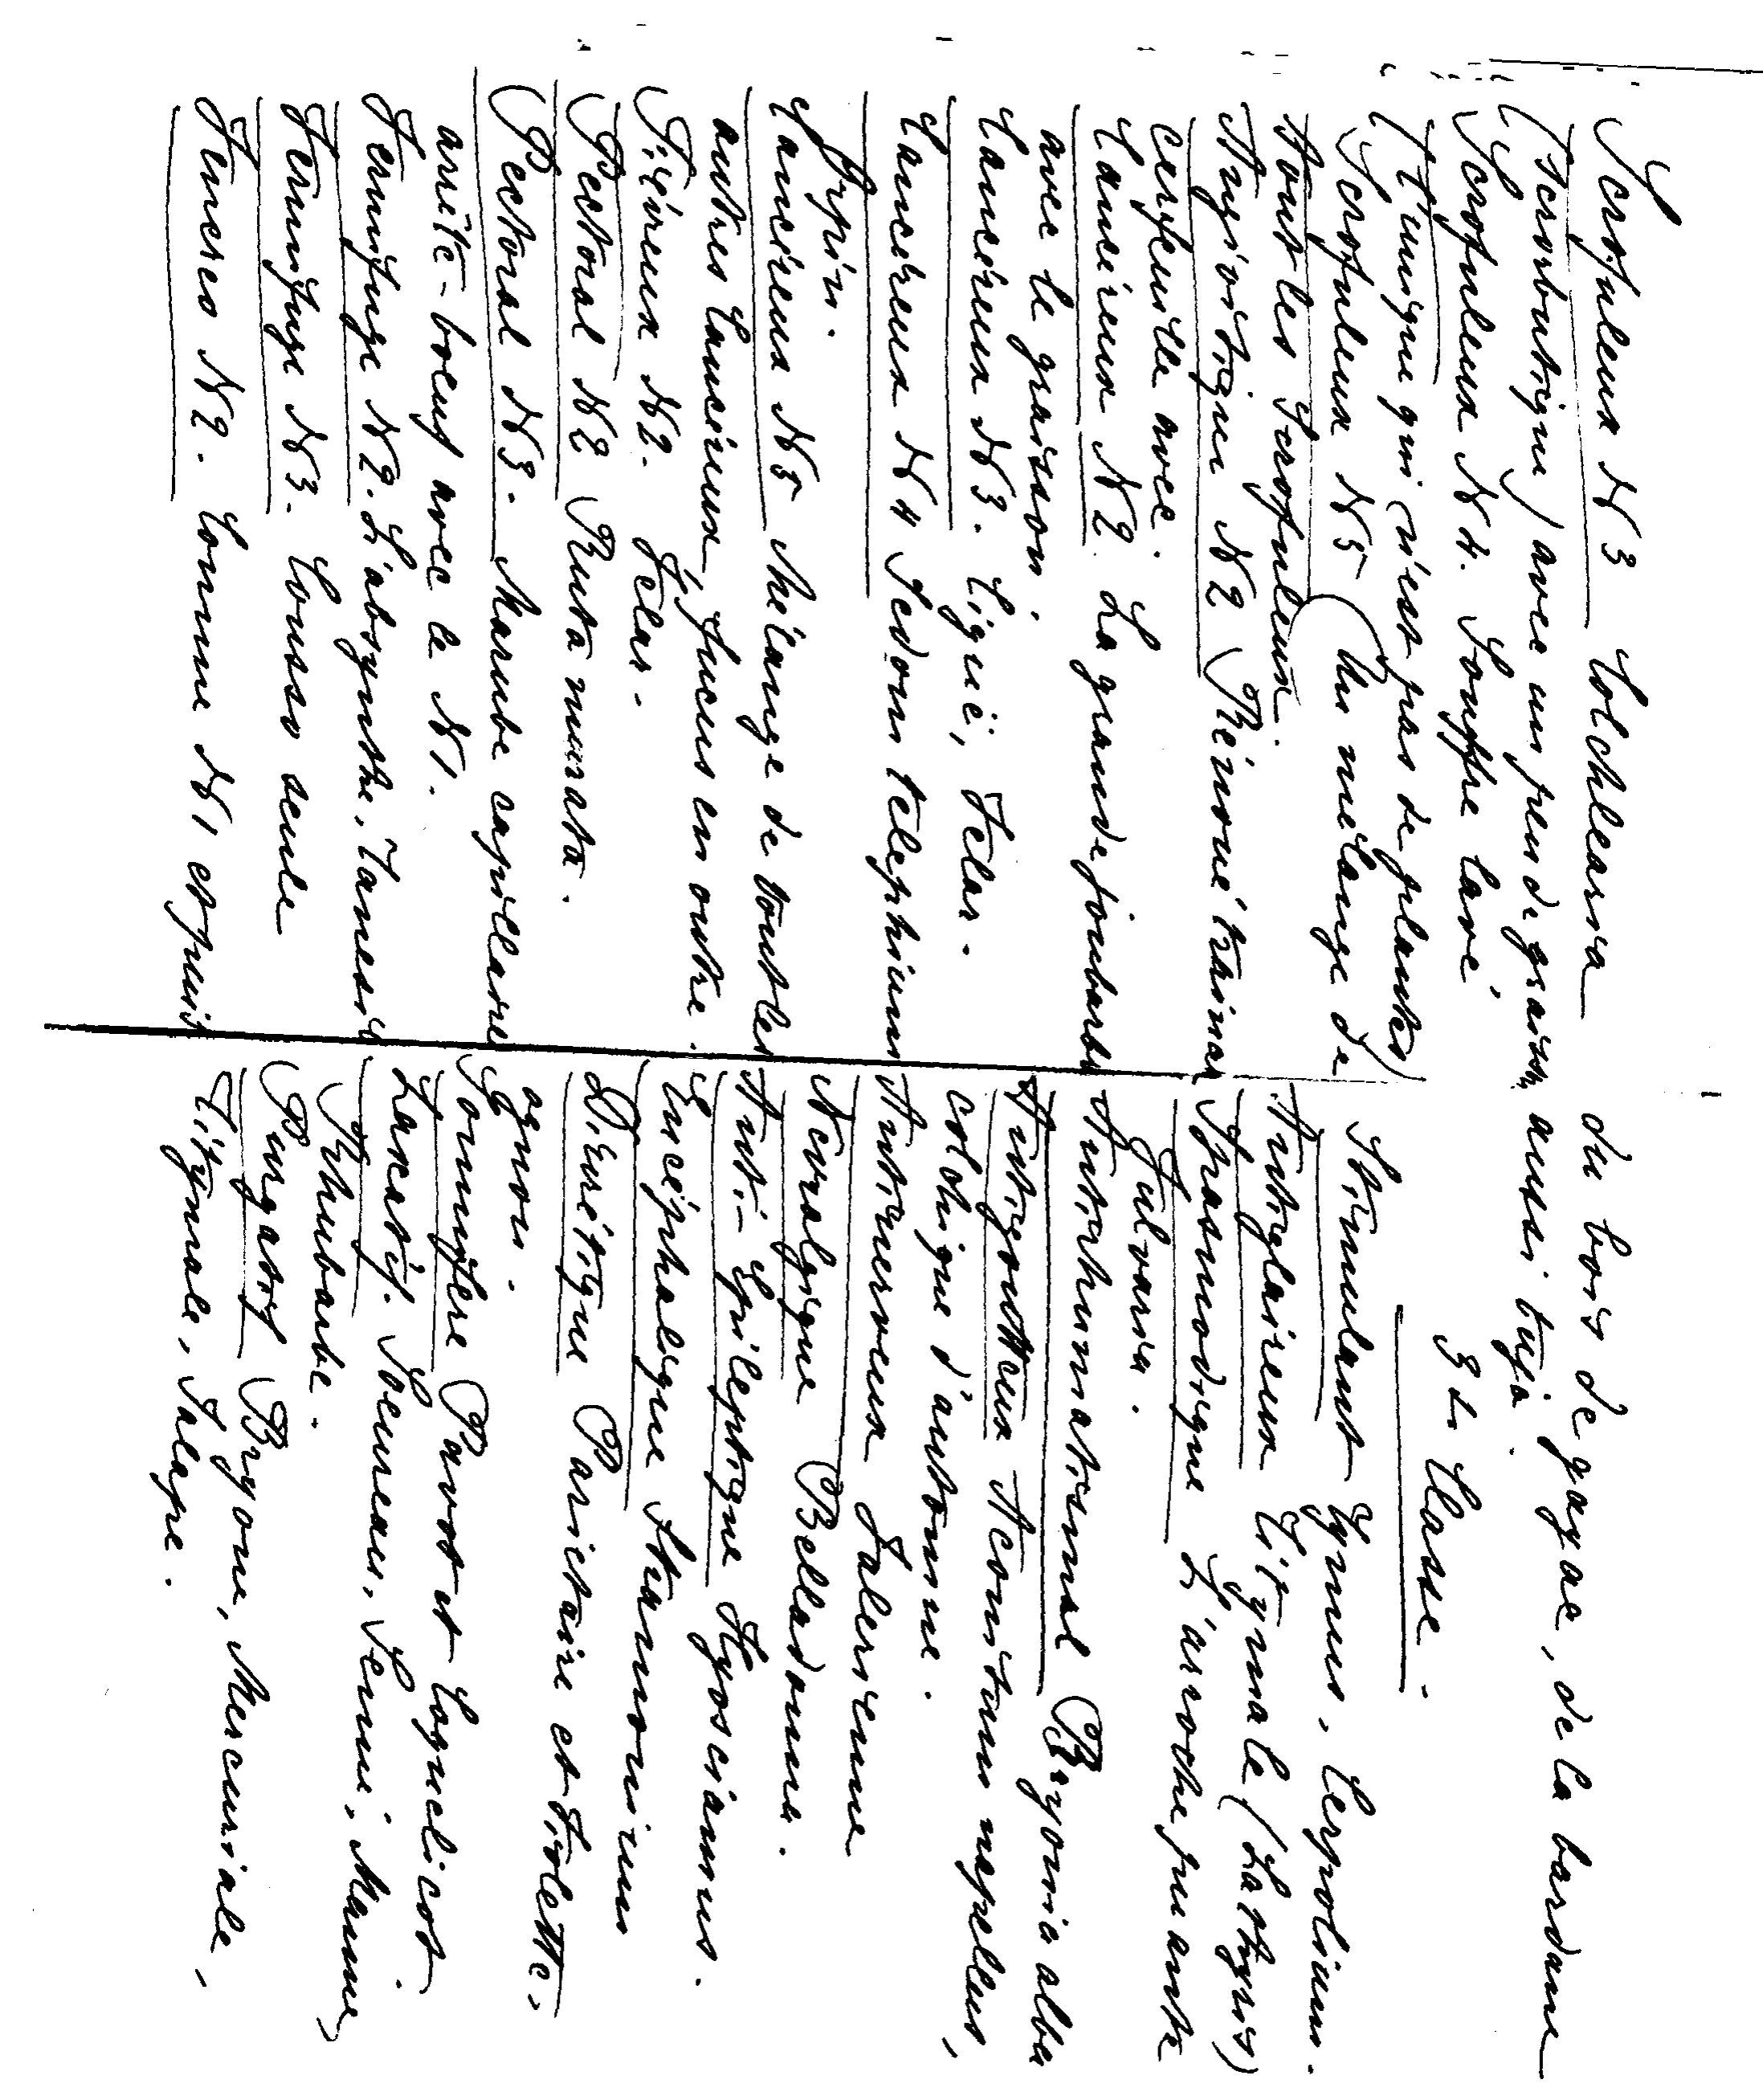 Scrofuleux N3 Cochlearia
(Scorbutique) avec un peu de graisse
Scrofuleux N4. Souffre lavé
(l'unique qui n'est pas de plantes)
Scrofuleux N5 Un mélange de
tout les Scrofuleux.
Angioitique N2 Pein oné traman
cerfeuille avec.
Cancéreux N2 La grande joubarbe
avec le graison.
Cancéreux N3. Ciguë, Velar.
Cancéreux N4 Sedum telephium
Orpin.
Cancéreux N5 Mélange de tout les
autres Cancéreux, fucus en outre.
Fièvreux N2. Velar.
Pectoral N2 Ruta murata.
Pectoral N3. Marube capillaire
arrête-boeuf avec le N1.
Vermifuge N2. L'absynthe, Tanesie
Vermifuge N3. Cousso seule
Venereo N2. Comme N1 et puis
du bois de gayac, de la bardane
aussi tuja.
3e. Classe.
Stimulant Gymus, Cerpolium.
Antiglaireux Titymale (Lathyris)
Spasmodique L'arroche puante
Vulvaria.
Antirhumatismal Bryonia alba
Antigoutteux Aconitum napellus,
colchique d'automne.
Antinerveux Valerienne
Nevralgique Belladonna.
Anti-Epileptique Hyosciamus.
Encéphalique Stramonium
Diurétique Parietaire et Violette.
ognon.
Somnifere Pavot et Coquelicot
Laxatif. Soeureau, Senne, Manne,
Rhubarbe.
Purgatif Bryone, Mercuriale,
Titymale, Jalape.